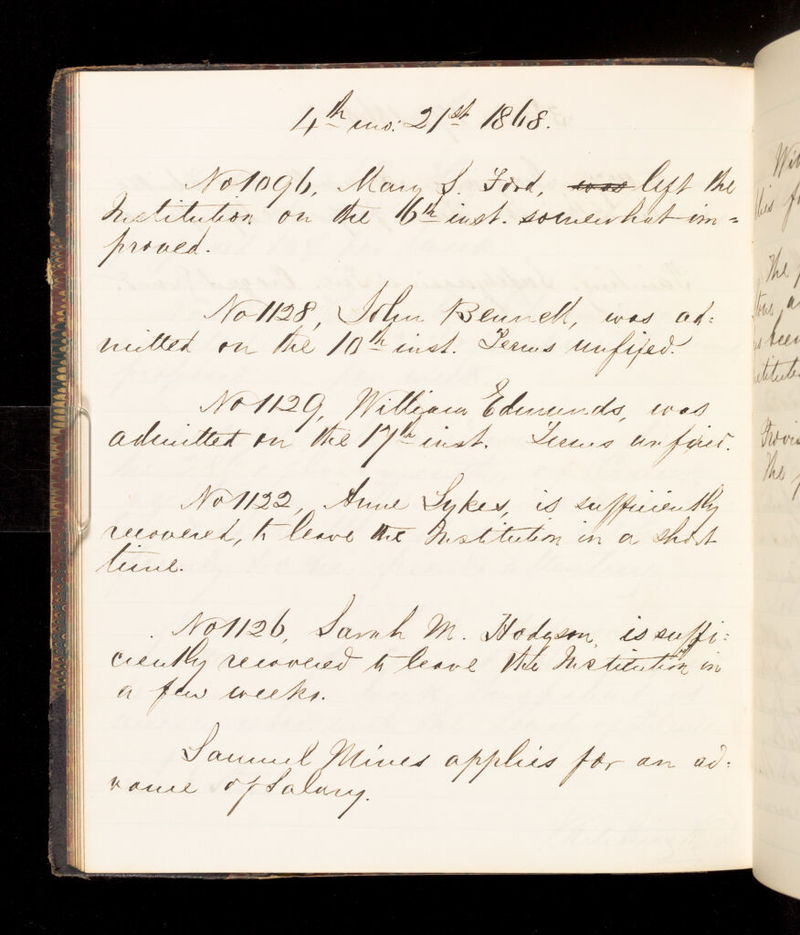 4th mo: 21st 1868.
No 1096, Mary S. Ford, was left the
Institution on the 16th inst. somewhat im=
proved.
No 1128, John Bennett, was ad:
mitted on the 10th inst. Terms unfixed.
No 1129, William Edmunds, was
admitted on the 17th inst. Terms unfixed.
No 1122, Anne Sykes, is sufficiently
recovered, to leave the Institution in a short
time.
No 1126, Sarah M. Hodgson, is suffi:
ciently recovered to leave the Institution in
a few weeks.
Samuel Mines applies for an ad:
vance of Salary.
The